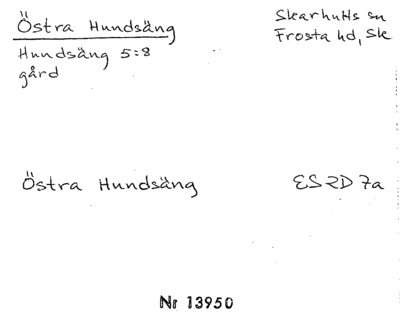 Östra Hundsäng
Skarhults sn
Hundsäng 5:8
Frosta hd, Sk
gård
Östra Hundsäng
ES 2D 7a
Nr 13950